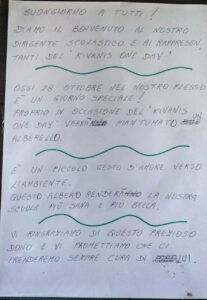 BUONGIORNO A TUTTI!
DIAMO IL BENVENUTO AL NOSTRO
DIRIGENTE SCOLASTICO E AI RAPPRESEN
TANTI DEL "KIWANIS ONE DAY"
OGGI 28 OTTOBRE NEL NOSTRO PLESSO
E' UN GIORNO SPECIALE!
PROPRIO IN OCCASIONE DEL "KIWANIS
ONE DAY" VERRÀ PIANTUMATO UN
ALBERELLO.
E' UN PICCOLO GESTO D'AMORE VERSO
L'AMBIENTE.
QUESTO ALBERO RENDERÀ LA NOSTRA
SCUOLA PIÙ SANA E PIÙ BELLA.
VI RINGRAZIAMO DI QUESTO PREZIOSO
DONO E VI PROMETTIAMO CHE CI
PRENDEREMO SEMPRE CURA DI LUI.